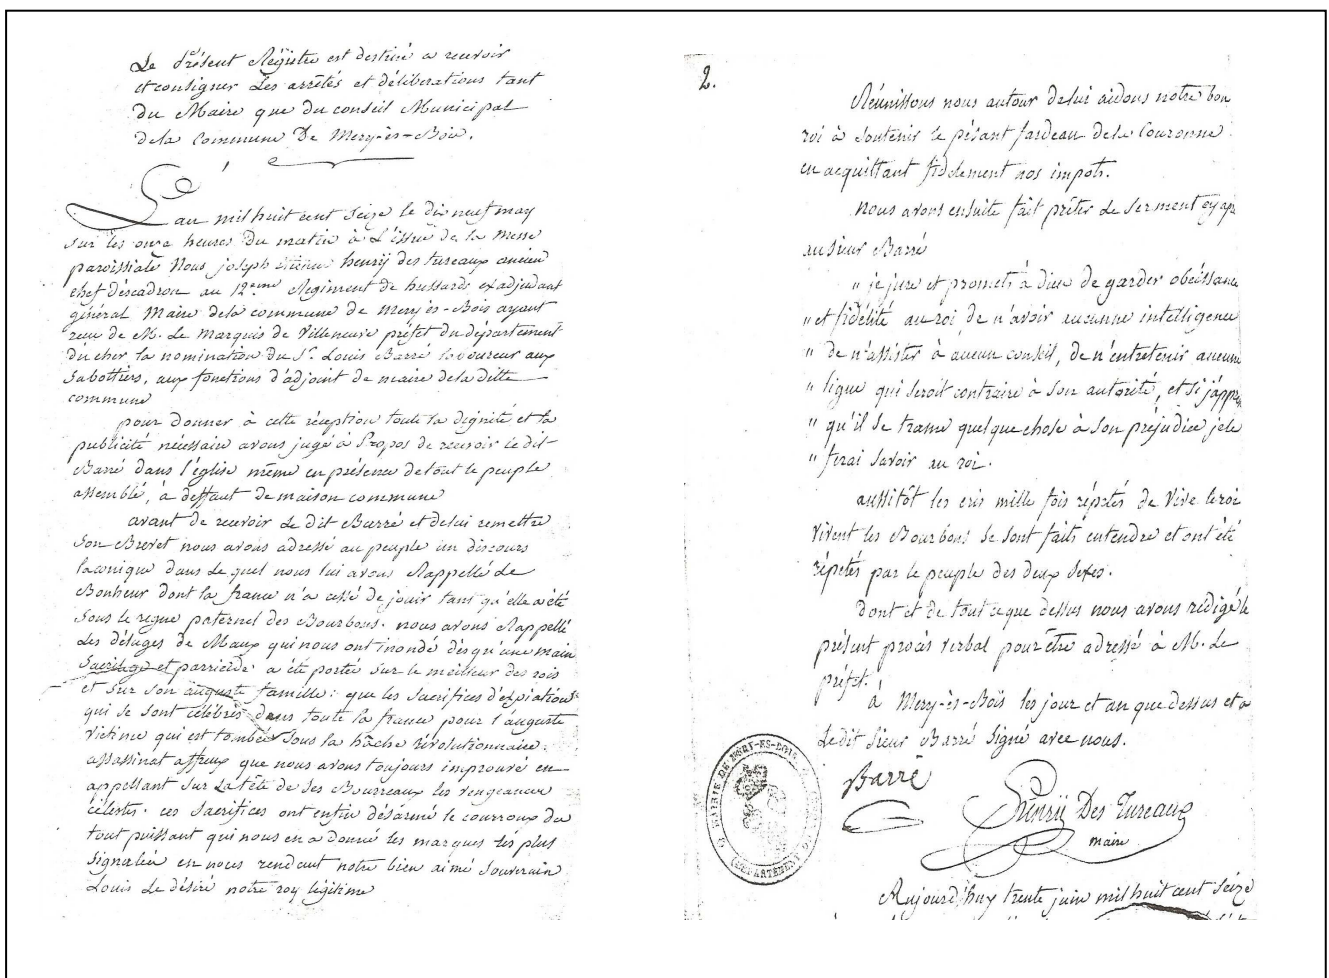 Le Présent Régistre est destiné a recevoir
et consigner Les arrêtés et déliberations tant
du Maire que du conseil Municipal
dela Commune De Mery-ès-Bois.
L'an mil huit cent Seize le dix neuf may
sur les onze heures du matin à L'issue de la Messe
paroissiale Nous joseph étienne henrij des tureaux ancien
chef d'éscadron au 12eme Régiment de hussards ex adjudant
général Maire dela commune de Mery-ès-Bois ayant
recu de M. Le Marquis de Villeneuve préfet du département
du cher la nomination du Sr. Louis Barré laboureur aux
Sabottiers, aux fonctions d'adjoint de maire dela ditte
commune
pour donner à cette réception toute la dignité et la
publicité nécessaire avons jugé à Propos de recevoir le dit
Barré dans l'église même en présence de tout le peuple
assemblé, à deffaut de maison commune
avant de recevoir Le dit Barré et de lui remettre
Son Brevet nous avons adressé au peuple un discours
laconique dans Le quel nous lui avons Rappellé Le
Bonheur dont la france n'a cessé de jouir tant qu'elle a été
Sous le regne paternel des Bourbons. nous avons Rappellé
Les déluges de Maux qui nous ont inondé dès qu'une main
Sacrilege et parricide a été portée sur le meilleur des rois
et sur son auguste famille: que les Sacrifices d'éxpiation
qui se sont célébrés dans toute la france pour l'auguste
Victime qui est tombée sous la hâche révolutionnaire.
assassinat affreux que nous avons toujours improuvé en
appellant sur la tête de Ses Bourreaux les vengeances
célestes. ces Sacrifices ont enfin désarmé le courroux du
tout puissant qui nous en a donné les marques les plus
Signalées en nous rendant notre bien aimé Souverain
Louis Le désiré notre roy légitime
2.
Réunissons nous autour delui aidons notre bon
roi à Soutenir le pésant fardeau dela Couronne
en acquittant fidelement nos impots.
Nous avons ensuite fait prêter Le Serment cy apr
au Sieur Barré
" je jure et promets à dieu de garder obéissance
" et fidélité au roi de n'avoir aucunne intelligence
" de n'assister à aucun conseil, de n'entretenir aucune
" ligue qui seroit contraire à Son autorité, et Si j'appre
" qu'il se trame quelque chose à Son préjudice je le
" ferai Savoir au roi.
aussitôt les cris mille fois répetés de Vive leroi
Vivent les Bourbons Se sont faits entendre et ont été
répetés par le peuple des deux Sexes.
dont et de tout ce que dessus nous avons rédigé le
présent procès verbal pour être adressé à M. Le
préfet.
à Mery-ès-Bois les jour et an que dessus et a
Ledit Sieur Barré Signé avec nous.
Barré
Henrij Des Tureaux
maire
MAIRIE DE MÉRY-ES-BOIS
DÉPARTEMENT
Aujourd'huy trente juin mil huit cent Seize